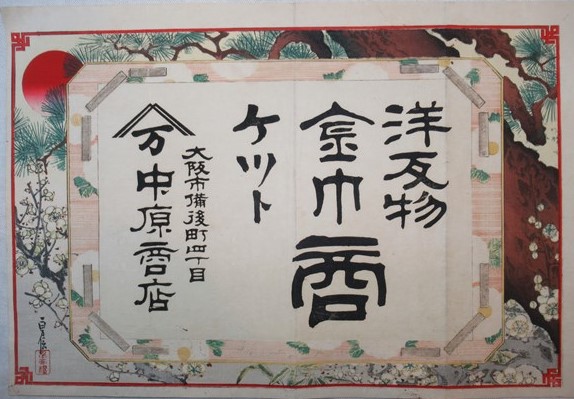 洋反物
金巾商
ケツト
大阪市備後町四丁目
万中原商店